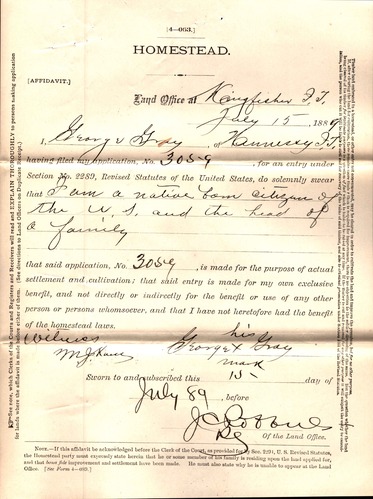 [4—063.]
HOMESTEAD.
[AFFIDAVIT.]
Land Office at Kingfisher I.T.
July 15, 1889
I, George Gray, of Hennessy I.T.
having filed my application, No. 3059, for an entry under
Section No. 2289, Revised Statutes of the United States, do solemnly swear
that I am a native born citizen of
the U. S. and the head of
a family
that said application, No. 3059, is made for the purpose of actual
settlement and cultivation; that said entry is made for my own exclusive
benefit, and not directly or indirectly for the benefit or use of any other
person or persons whomsoever, and that I have not heretofore had the benefit
of the homestead laws.
Witness his
George X Gray
mark
Sworn to and subscribed this 15 day of
July 89, before
J C Robberts
Reg Of the Land Office.
NOTE.—If this affidavit be acknowledged before the Clerk of the Court, as provided for by Sec. 2294, U. S. Revised Statutes,
the Homestead party must expressly state herein that he or some member of his family is residing upon the land applied for,
and that bona fide improvement and settlement have been made. He must also state why he is unable to appear at the Land
Office. [See Form 4—063.]
NOTE, which Clerks of the Courts and Registers and Receivers will read and EXPLAIN THOROUGHLY to persons making application
for lands where the affidavit is made before either of them. (See directions to Land Officers on Duplicate Receipt.)